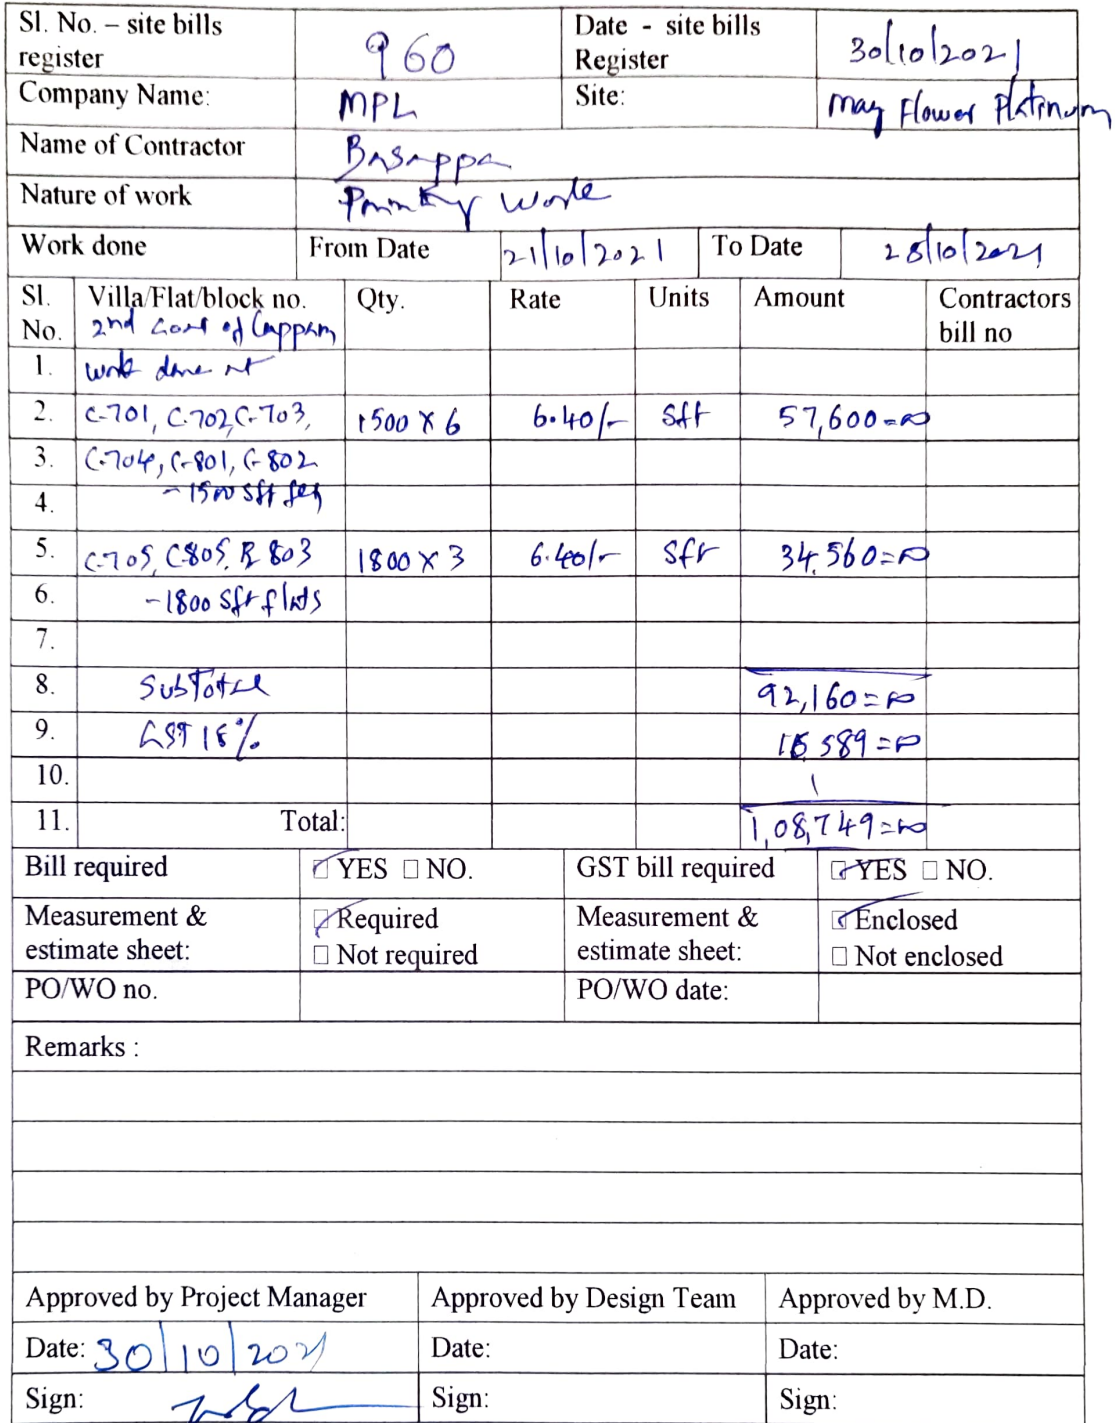 Sl. No. – site bills register 960 Date - site bills Register 30/10/2021
Company Name: MPL Site: May Flower Platinum
Name of Contractor Basappa
Nature of work Painting Work
Work done From Date 21/10/2021 To Date 28/10/2021
Sl. No. Villa/Flat/block no. Qty. Rate Units Amount Contractors bill no
2nd coat of Lappam
1. work done at
2. C-701, C-702, C-703, 1500 x 6 6.40/- Sft 57,600=00
3. C-704, C-801, C-802
4. - 1500 Sft
5. C-705, C-805, & 803 1800 x 3 6.40/- Sft 34,560=00
6. - 1800 Sft flats
7.
8. SubTotal 92,160=00
9. GST 18% 16,589=00
10.
11. Total: 1,08,749=00
Bill required YES NO. GST bill required YES NO.
Measurement & estimate sheet: Required Not required Measurement & estimate sheet: Enclosed Not enclosed
PO/WO no. PO/WO date:
Remarks :
Approved by Project Manager Approved by Design Team Approved by M.D.
Date: 30/10/2021 Date: Date:
Sign: Sign: Sign: